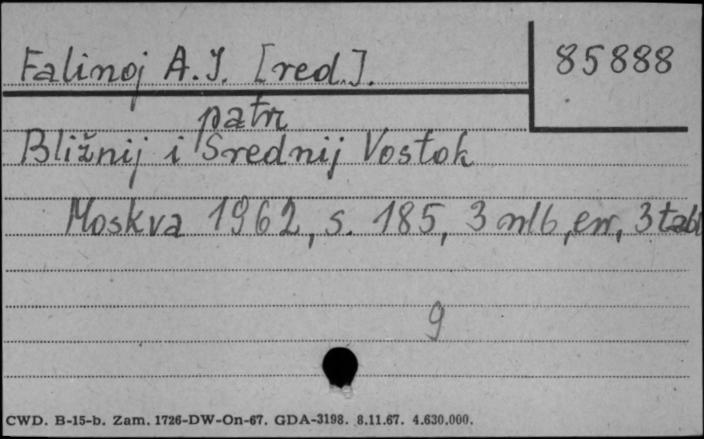 Falinoj A.J. [red.].
85888
patr
Bližnij i Srednij Vostok
Moskva 1962, s. 185, 3 nlb, err, 3 tabl
9
CWD. B-15-b. Zam. 1726-DW-On-67. GDA-3198. 8.11.67. 4.630.000.